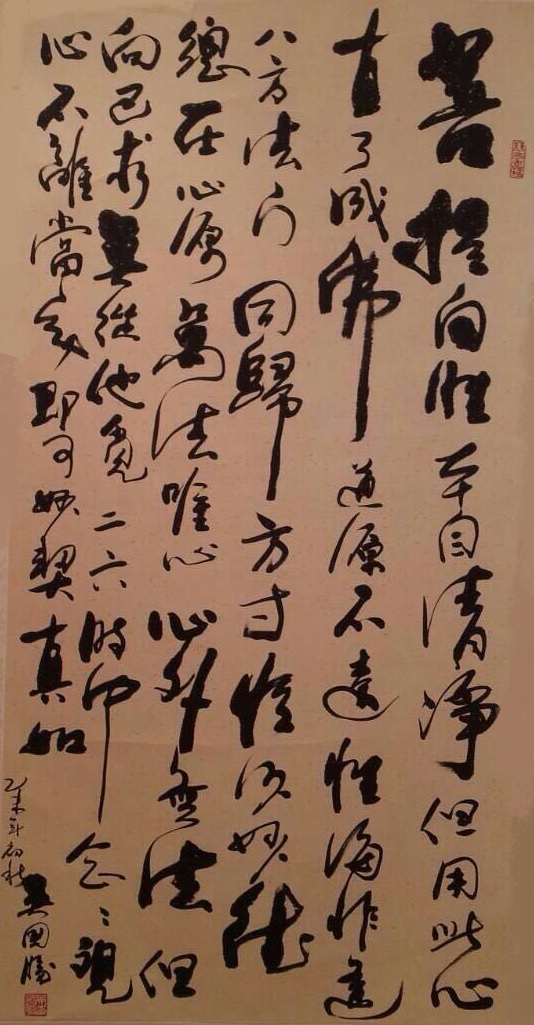 菩提自性本自清淨但用此心
直了成佛道源不遠性海非遙
八方法门同歸方寸恒沙妙德
總在心源萬法唯心心外無法但
向己求莫從他覓二六時中念〻觀
心不離當處即可妙契真如
乙未年初秋